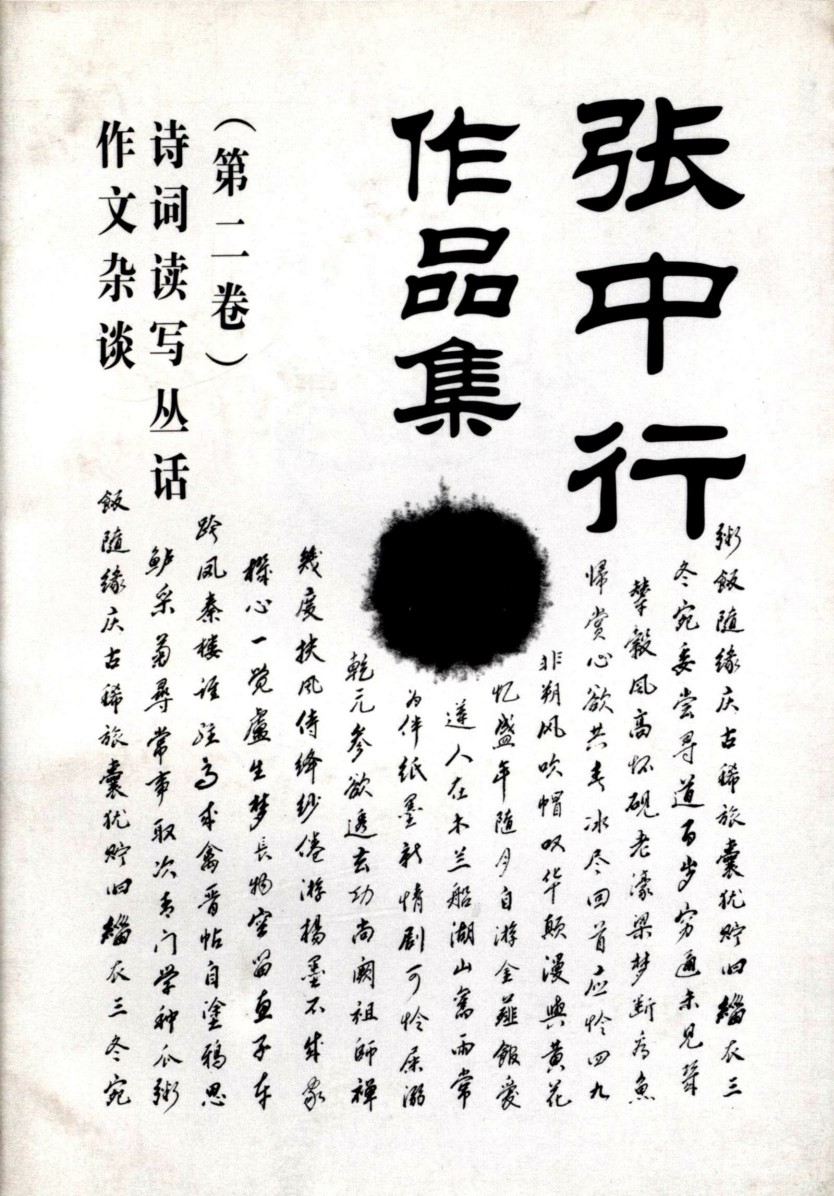 张中行
作品集
（第二卷）
诗词读写丛话
作文杂谈
粥飯随缘庆古稀旅囊犹贮旧缁衣三
冬宛委尝寻道百步穷通未见
毂风高怀砚老濠梁梦断为鱼
归赏心欲共春冰尽回首应怜四九
非朔风吹帽叹华颠漫与黄花
忆盛年随月自游金薤馆爱
莲人在木兰船湖山旧雨常
为伴纸墨新情剧可怜尿溺
乾元参欲透玄功尚阙祖师禅
幾度扶风侍绛纱倦游扬墨不成家
心一觉盧生梦長物空留惠子车
跨凤秦楼谁驻马求禽晋帖自塗鸦思
鲈采菊尋常事取次青门学种瓜粥
飯随缘庆古稀旅囊犹贮旧缁衣三冬宛